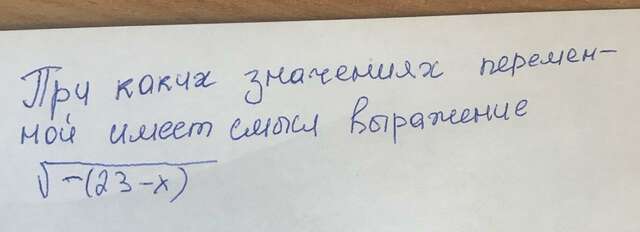 При каких значениях перемен-
ной имеет смысл выражение
√-(23-x)